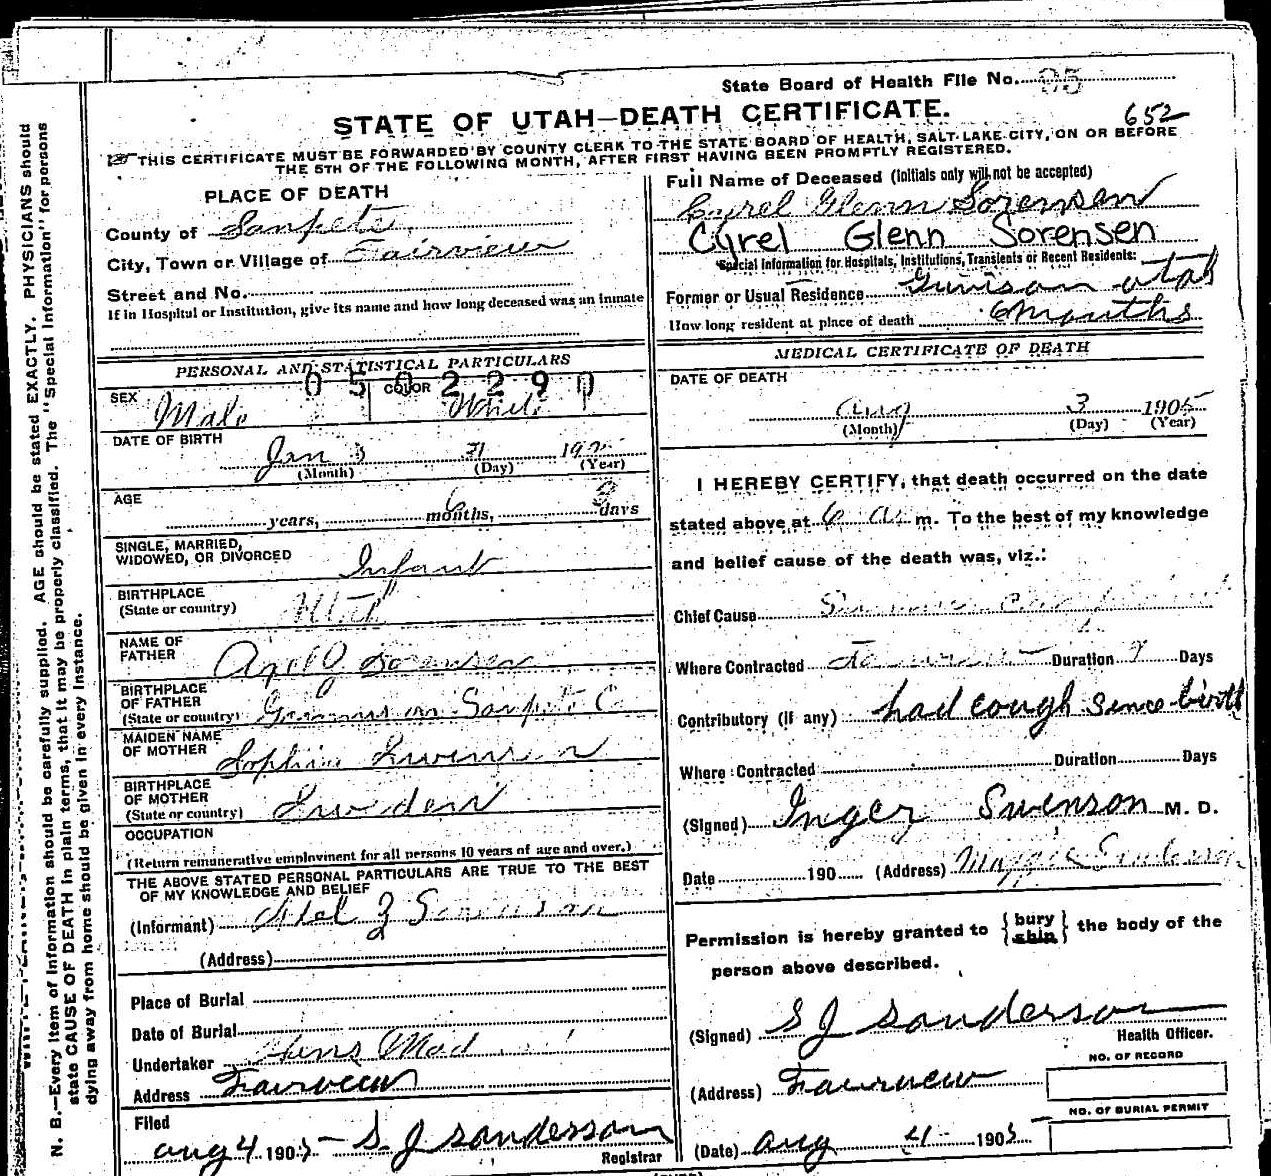 State Board of Health File No. 95
652
STATE OF UTAH—DEATH CERTIFICATE.
THIS CERTIFICATE MUST BE FORWARDED BY COUNTY CLERK TO THE STATE BOARD OF HEALTH, SALT LAKE CITY, ON OR BEFORE
THE 5TH OF THE FOLLOWING MONTH, AFTER FIRST HAVING BEEN PROMPTLY REGISTERED.
PLACE OF DEATH
County of Sanpete
City, Town or Village of Fairview
Street and No.
If in Hospital or Institution, give its name and how long deceased was an inmate
PERSONAL AND STATISTICAL PARTICULARS
0502290
SEX Male
COLOR White
DATE OF BIRTH
Jan 31 190
(Month) (Day) (Year)
AGE
years, 6 months, 3 days
SINGLE, MARRIED,
WIDOWED, OR DIVORCED Infant
BIRTHPLACE
(State or country) Utah
NAME OF
FATHER Sorensen
BIRTHPLACE
OF FATHER
(State or country) Gunnison Sanpete Co
MAIDEN NAME
OF MOTHER Sophia Swensen
BIRTHPLACE
OF MOTHER
(State or country) Sweden
OCCUPATION
(Return remunerative employment for all persons 10 years of age and over.)
THE ABOVE STATED PERSONAL PARTICULARS ARE TRUE TO THE BEST
OF MY KNOWLEDGE AND BELIEF
(Informant)
(Address)
Place of Burial
Date of Burial
Undertaker
Address Fairview
Filed
Aug 4 1905 S. J Sanderson
Registrar
Full Name of Deceased (Initials only will not be accepted)
Cyrel Glenn Sorensen
Cyrel Glenn Sorensen
Special Information for Hospitals, Institutions, Transients or Recent Residents:
Former or Usual Residence Gunison Utah
How long resident at place of death 6 months
MEDICAL CERTIFICATE OF DEATH
DATE OF DEATH
Aug 3 1905
(Month) (Day) (Year)
I HEREBY CERTIFY, that death occurred on the date
stated above at 6 a. m. To the best of my knowledge
and belief cause of the death was, viz.:
Chief Cause
Where Contracted Duration 9 Days
Contributory (if any) had cough since birth
Where Contracted Duration Days
(Signed) Inger Swenson M. D.
Date 190 (Address)
Permission is hereby granted to { bury ship } the body of the
person above described.
(Signed) S J Sanderson
Health Officer.
NO. OF RECORD
(Address) Fairview
NO. OF BURIAL PERMIT
(Date) Aug 4 1905
N. B.—Every item of information should be carefully supplied. AGE should be stated EXACTLY. PHYSICIANS should
state CAUSE OF DEATH in plain terms, that it may be properly classified. The "Special Information" for persons
dying away from home should be given in every instance.